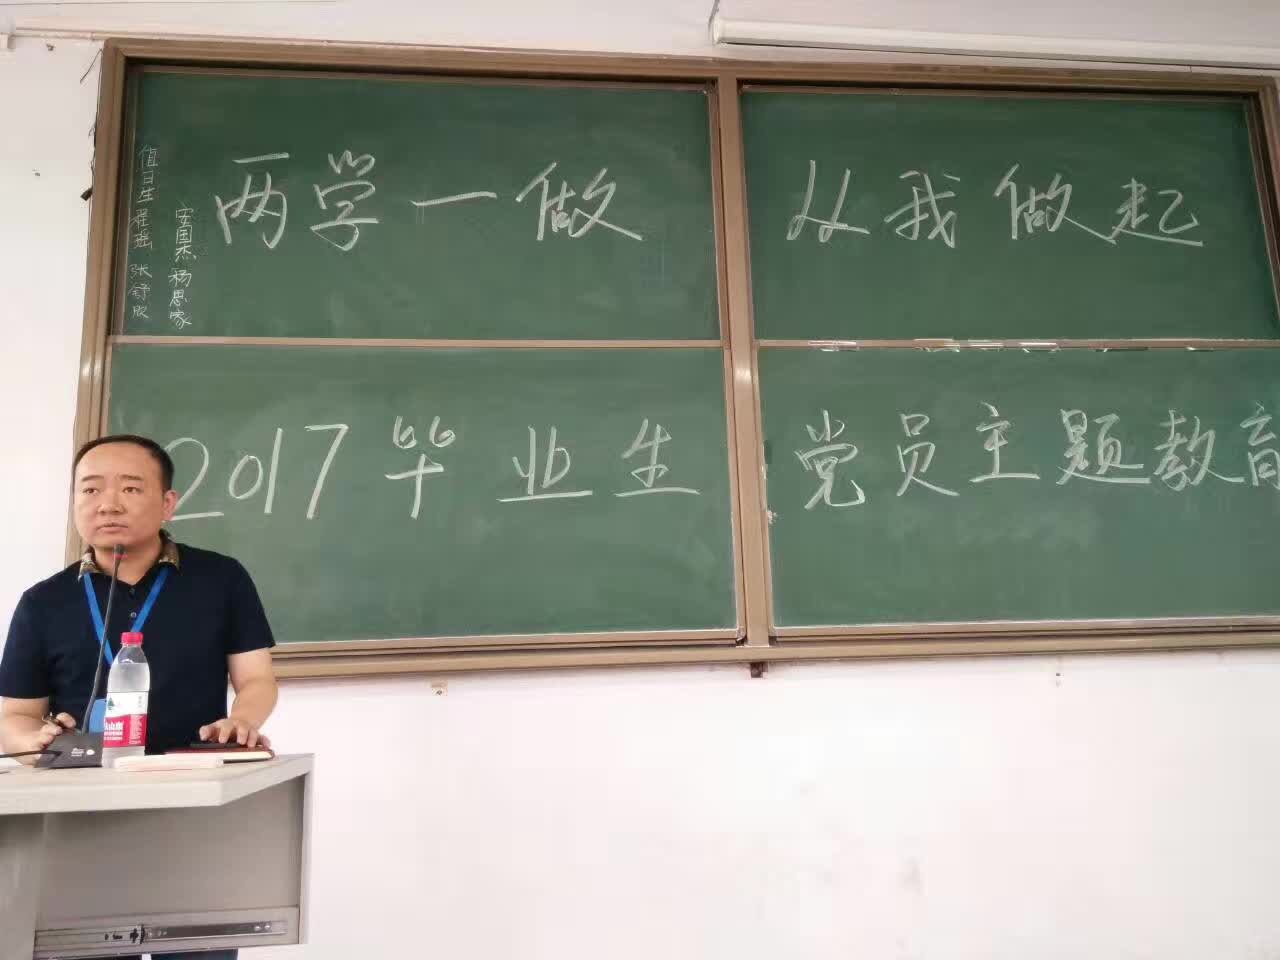 两学一做 从我做起
2017毕业生 党员主题教育
值日生 程瑶 张舒
安国杰 杨思家